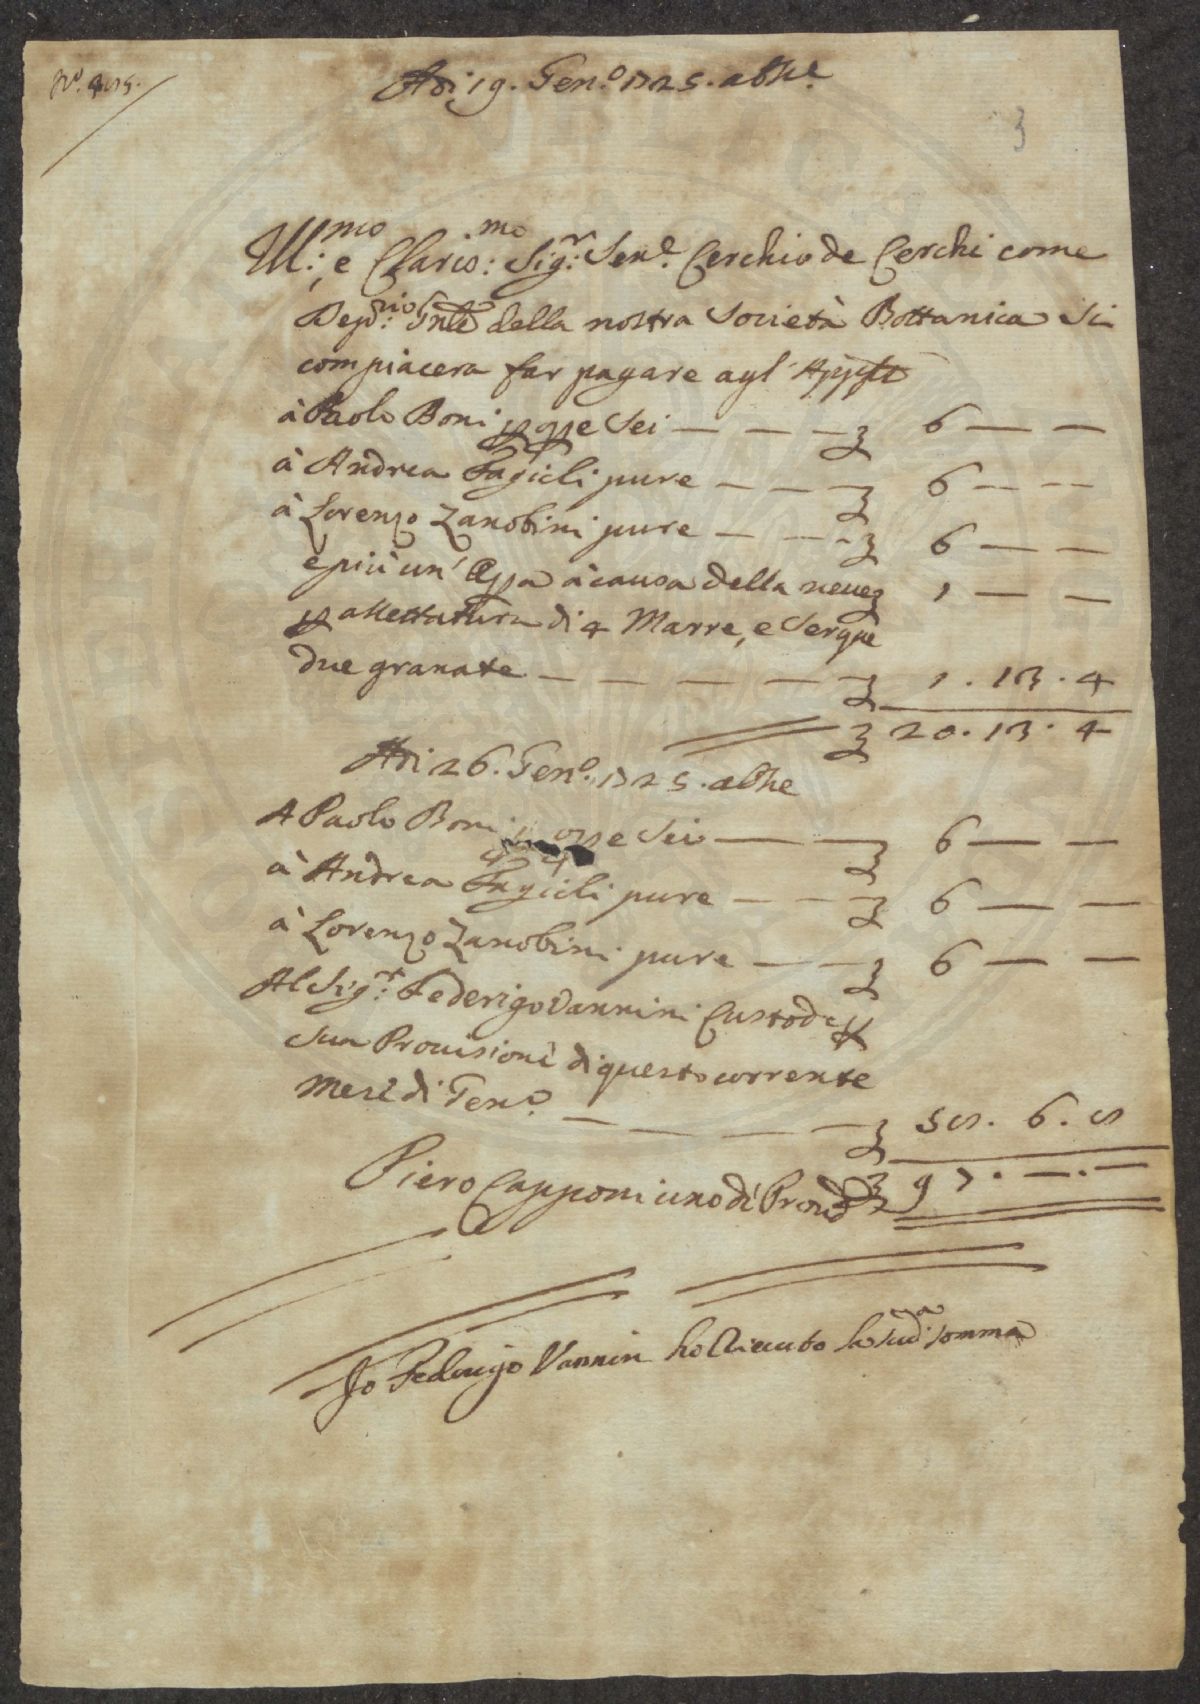 Adi 19. Gen.o 1725. ab Inc.e
3
Ill:mo, e Clariss:mo Sig:r Sen.e Cerchio de Cerchi come
Dep:rio Gnle della nostra Società Bottanica si
compiacera far pagare agl' Appti
à Paolo Boni p opre Sei — — — 6 — —
à Andrea Fagioli pure — — — 6 — —
à Lorenzo Zanobini pure — — — 6 — —
e più un' Opra à causa della neve 1 — —
p di 4 Marre, e Serque
due granate — — — — — 1. 13. 4
20. 13. 4
Adi 26. Gen.o 1725. ab Inc
A Paolo Boni p opre Sei — — 6 — —
à Andrea Fagioli pure — — — 6 — —
à Lorenzo Zanobini pure — — 6 — —
Al Sig:r Federigo Vannini Custode p
sua Provisione di questo corrente
Mese di Gen.o — — — — 6.
Piero Capponi uno di Provd 97. —. —
Io Federigo Vannini ho Riceuto la sud:a somma